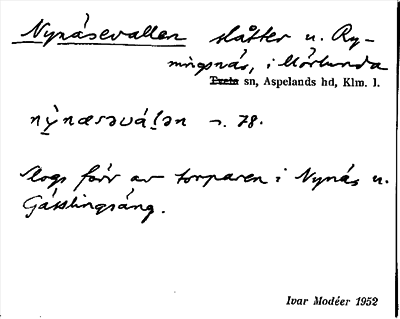 Nynäsevallen slåtter u. Ry-
mingsnäs, i Mörlunda
Tveta sn, Aspelands hd, Klm. l.
nỳnæsəvál̥ən 78.
Slogs förr av torparen i Nynäs u.
Gässlingsäng.
Ivar Modéer 1952